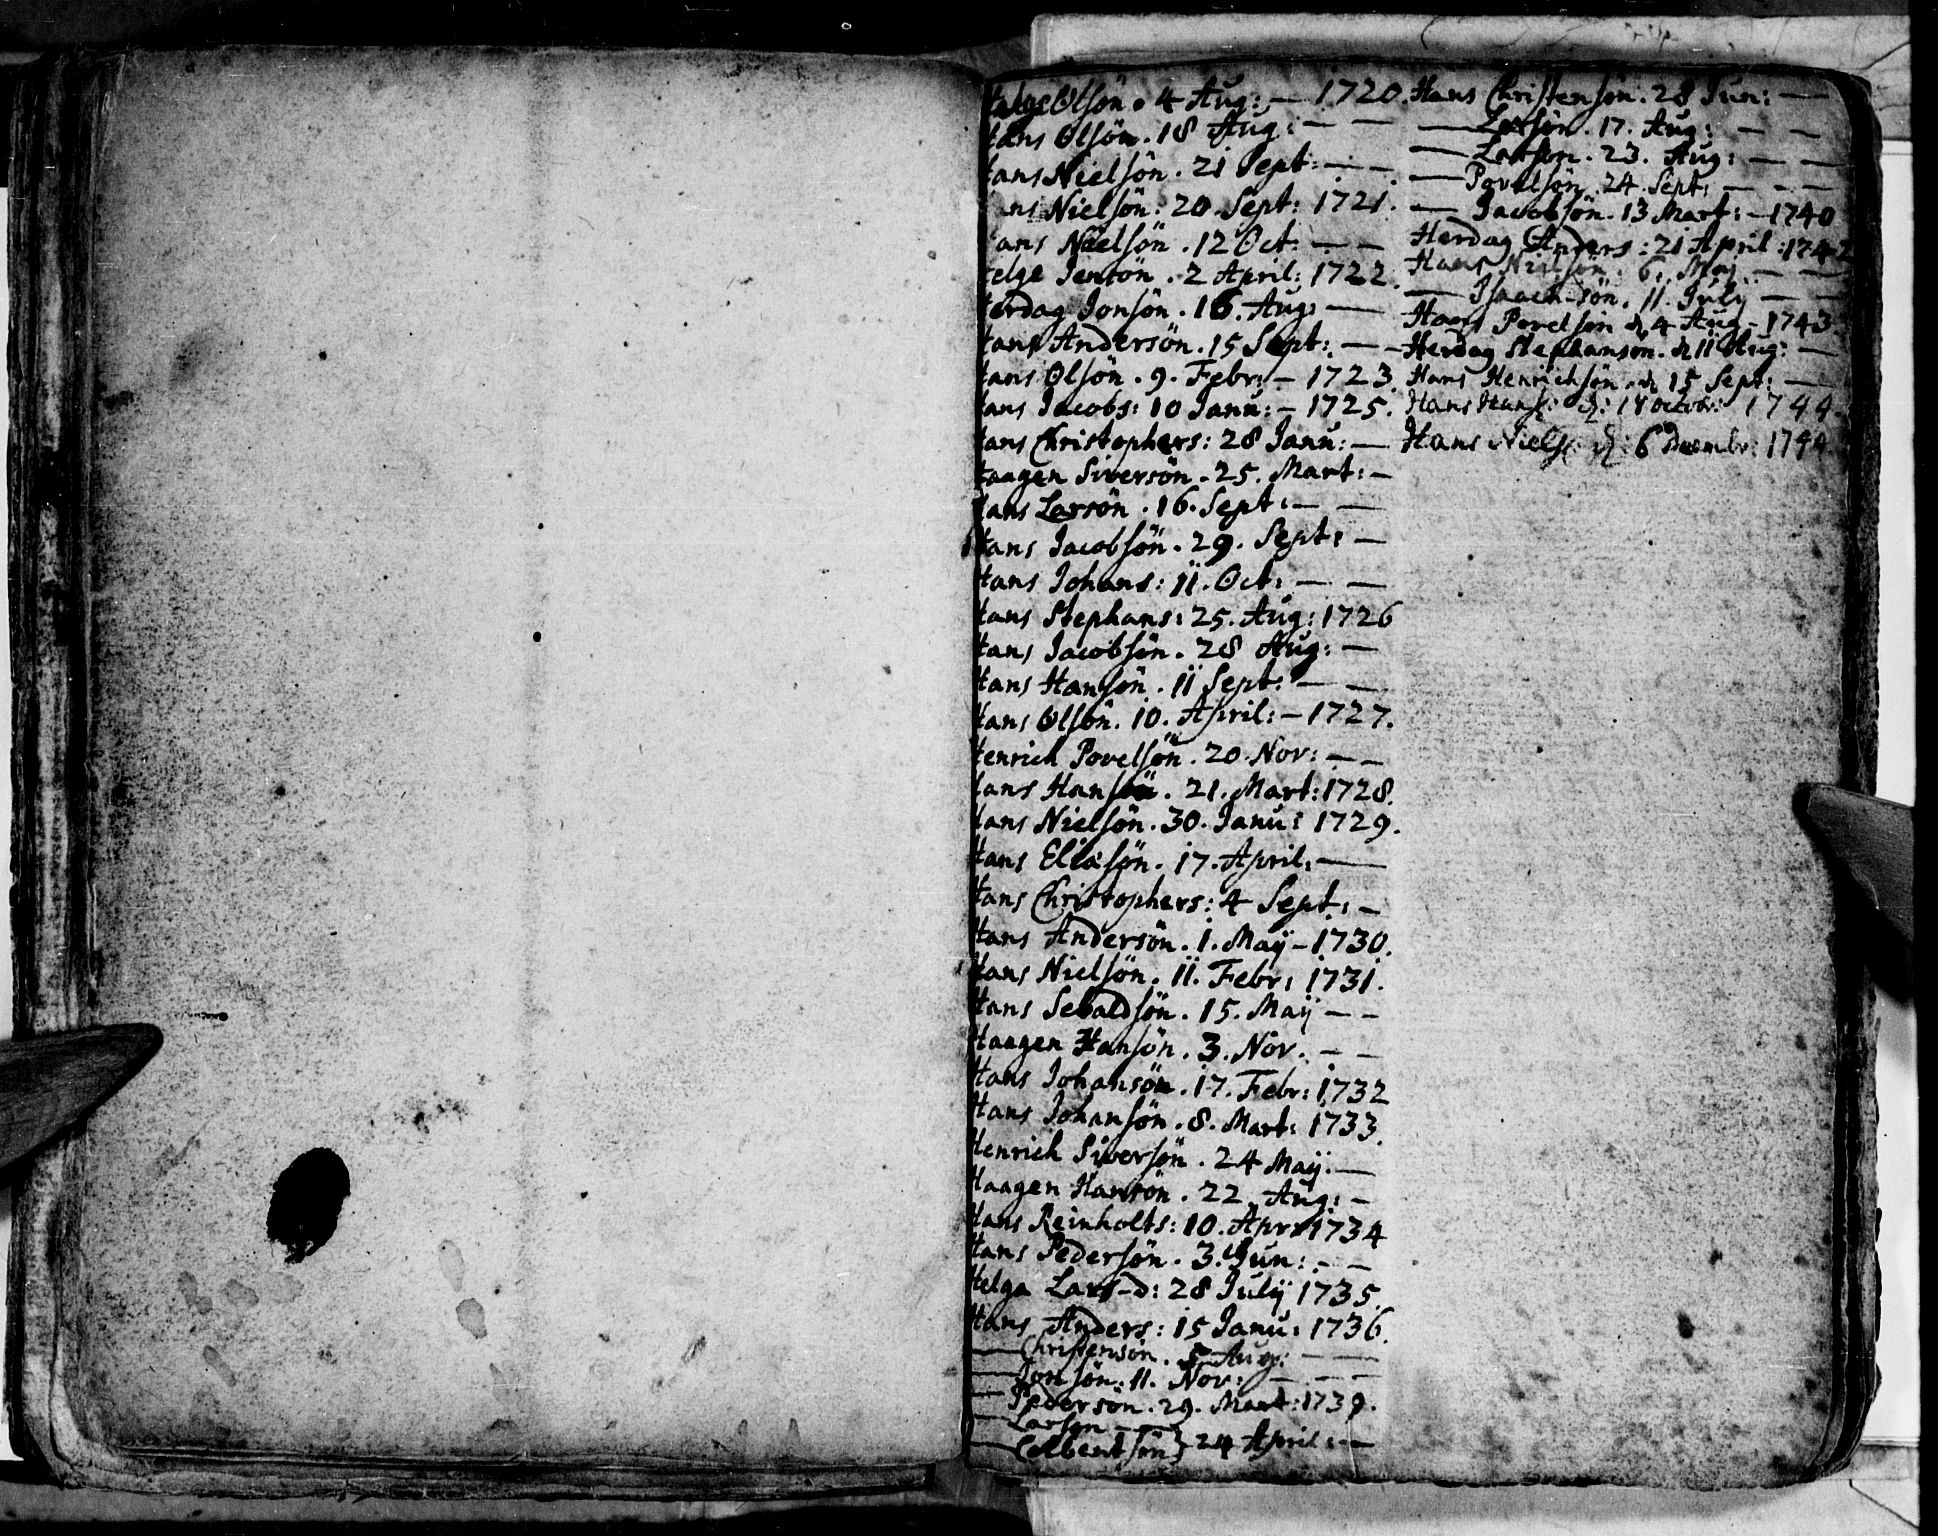 Helge Olsön. 4 Aug: — 1720.
Hans Olsön. 18 Aug: — —
Hans Nielsön. 21 Sept: — —
Hans Nielsön. 20. Sept: 1721.
Hans Nielsön. 12 Oct: — —
Helge Jensön. 2 April: 1722.
Herdag Jonsön. 16. Aug: —
Hans Andersön. 15 Sept: — —
Hans Olsön. 9. Febr: — 1723.
Hans Jacobs: 10 Janu: — 1725.
Hans Christophers: 28 Janu: —
Haagen Siversön. 25. Mart: —
Hans Larsön. 16. Sept: — —
Hans Jacobsön. 29. Sept: —
Hans Johans: 11. Oct: — —
Hans Stephans: 25. Aug: 1726
Hans Jacobsön. 28 Aug: —
Hans Hansön. 11 Sept: — —
Hans Olsön. 10. April: — 1727.
Henrich Povelsön. 20. Nov: — —
Hans Hansön. 21. Mart: 1728.
Hans Nielsön. 30. Janu: 1729.
Hans Eliasön. 17. April: —
Hans Christophers: 4 Sept: —
Hans Andersön. 1. Maÿ — 1730.
Hans Nielsön. 11. Febr: 1731.
Hans Sebaldsön. 15. Maÿ — —
Haagen Hansön. 3. Nov. — —
Hans Johansön. 17. Febr: 1732
Hans Johansön. 8. Mart: 1733.
Henrich Siversön. 24 Maÿ. —
Haagen Hansön. 22. Aug: —
Hans Reinholts: 10. Apr: 1734
Hans Pedersön. 3. Jun: — —
Helga Lars-d: 28 Julÿ 1735.
Hans Anders: 15 Janu: 1736.
— Christensön. 5 Aug: — —
— Jonsön. 11. Nov: — — —
— Pedersön. 29. Mart: 1739.
— Larsön — —
— Colbentsön} 24 April: —
Hans Christensön. 28 Jun: —
— Larsön. 17. Aug: — —
— Larsön. 23. Aug: — —
— Povelsön. 24. Sept: — — —
— Jacobsön. 13 Mart: — 1740
Herdag Anders: 21 April: 1742
Hans Nielsön. 6. Maÿ — —
— Isaach-sön. 11. Julÿ — —
Hans Povelsön d 4 Aug — 1743.
Herdag Stephansön. d 11 Aug: —
Hans Henrichsön. d 15 Sept: —
Hans Hans: d: 18 octobr: 1744.
Hans Niels: d: 6 Decembr: 1744